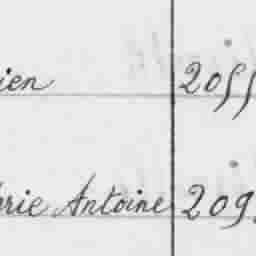 ien 2055
brie Antoine 209